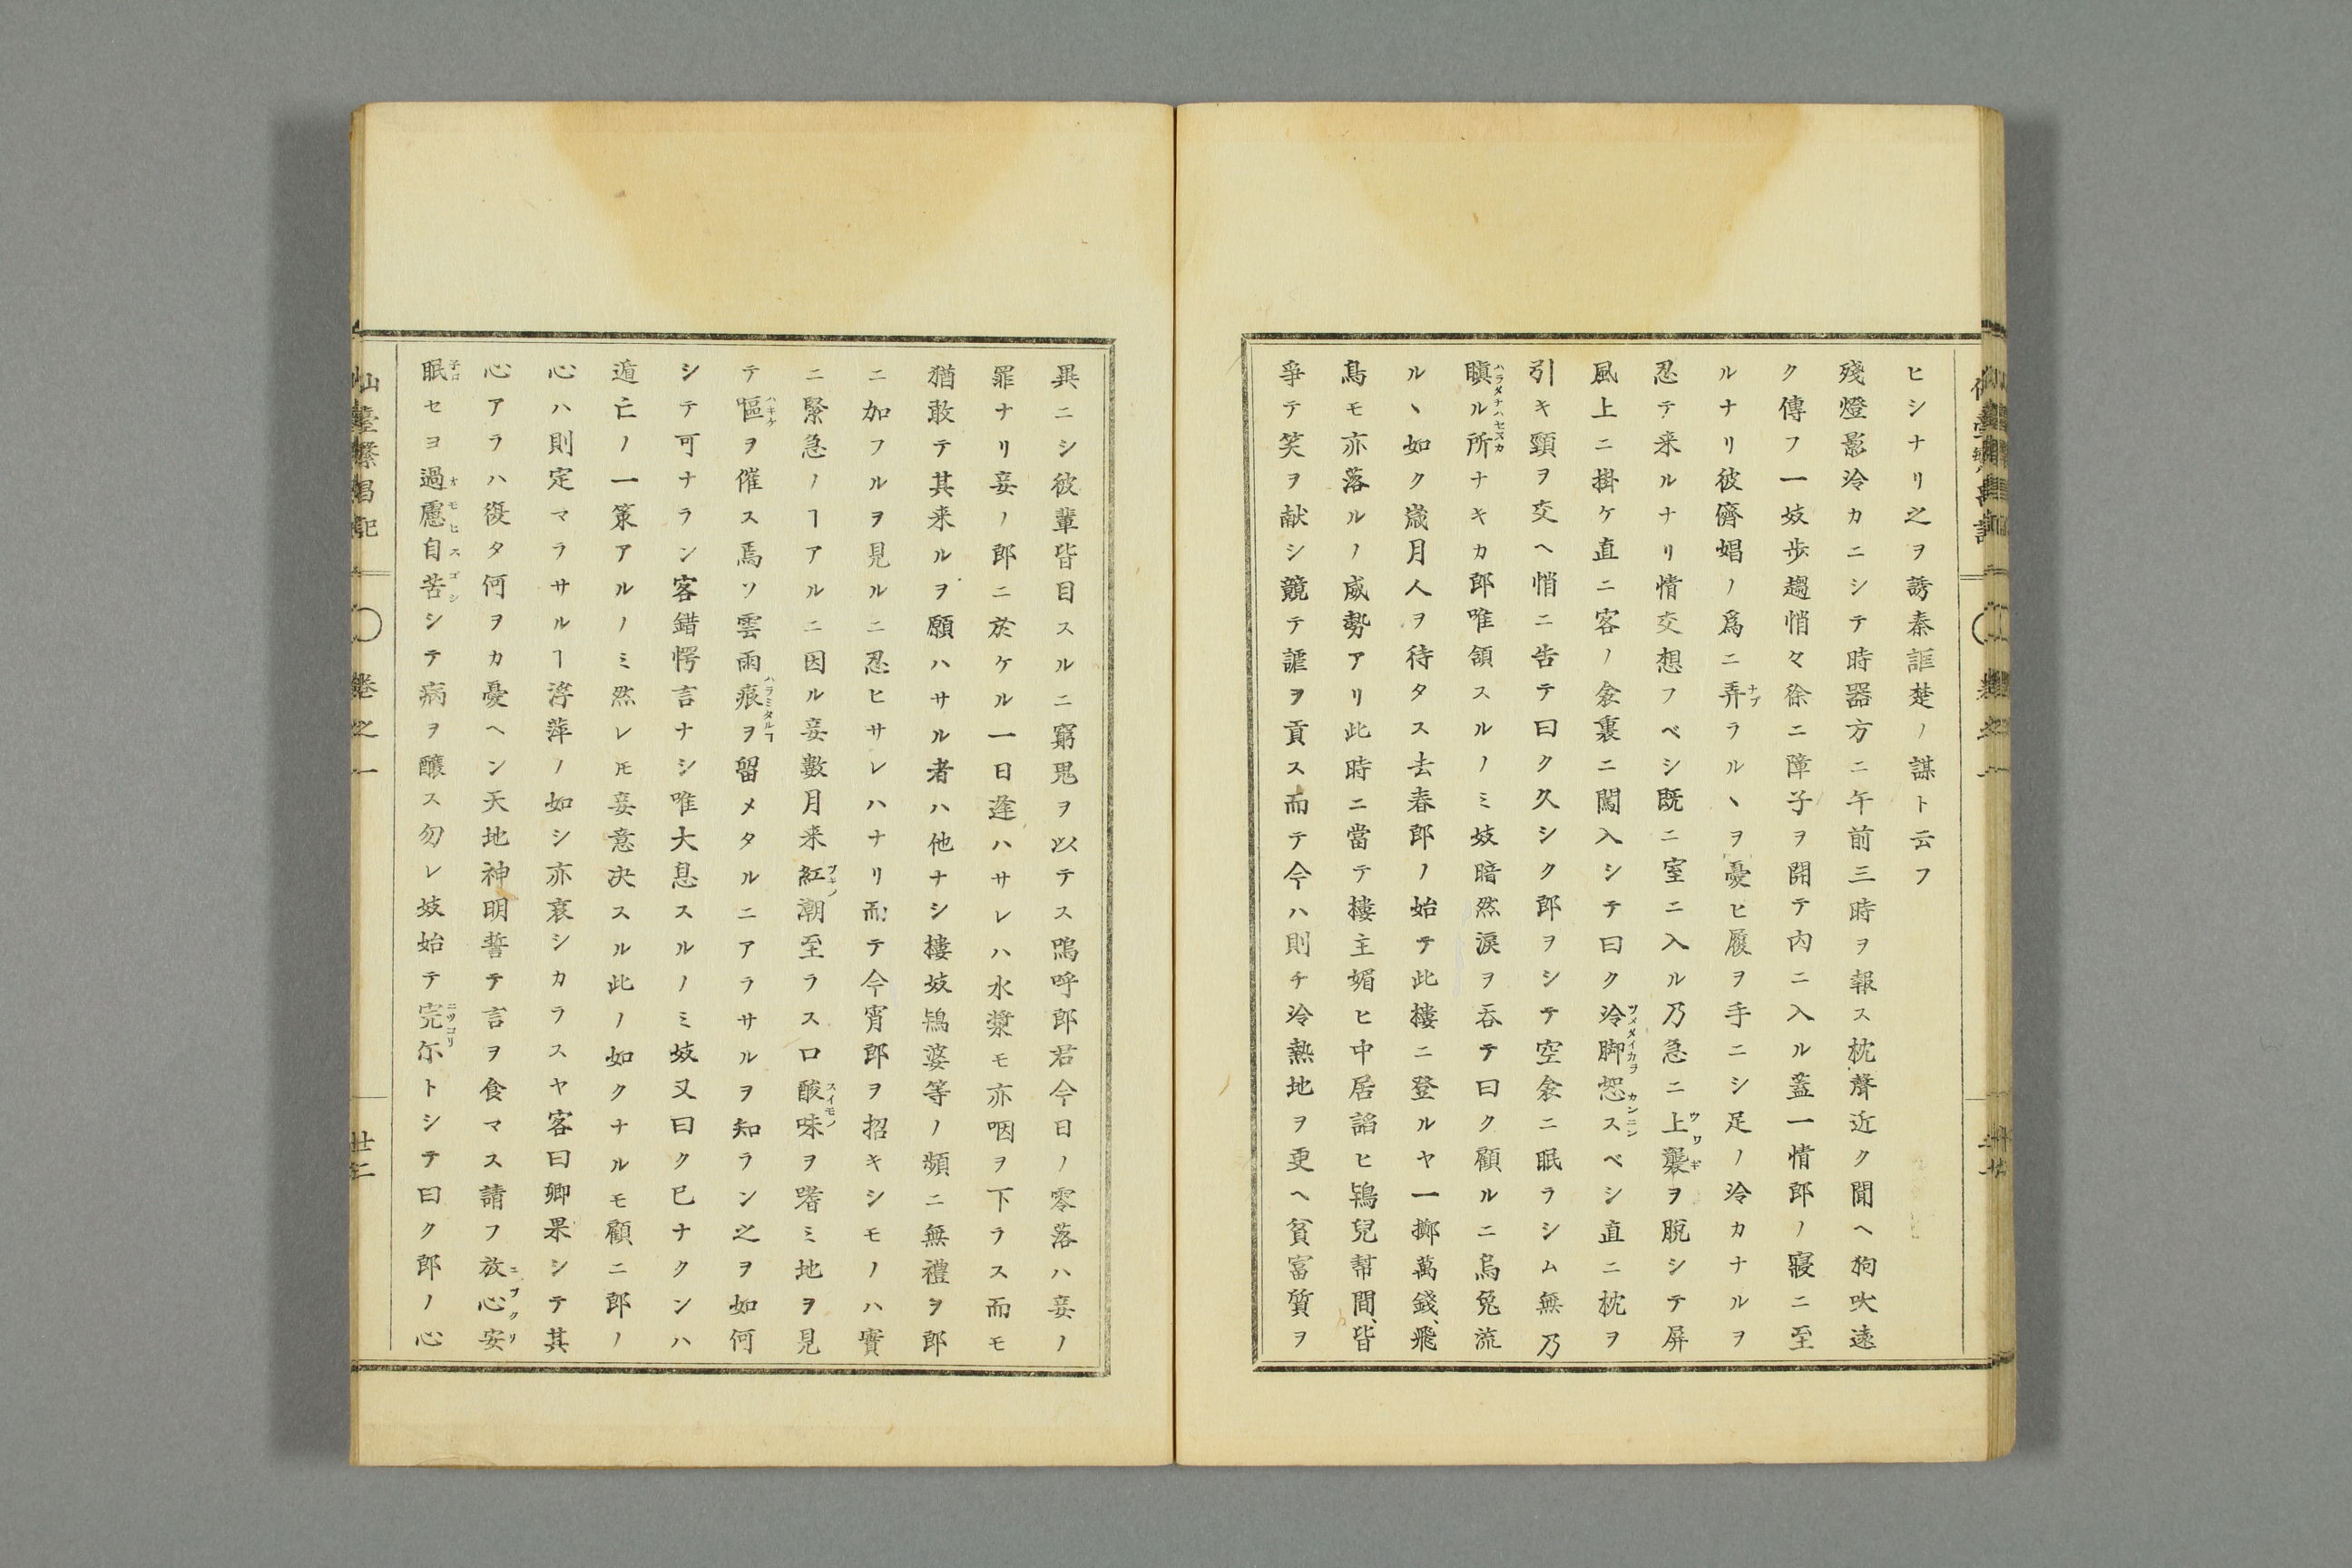 ヒシナリ之ヲ誘秦誆楚ノ謀ト云フ
殘燈影冷カニシテ時器方ニ午前三時ヲ報ス枕聲近ク聞ヘ狗吠遠
ク傳フ一妓歩趨悄々徐ニ障子ヲ開テ内ニ入ル蓋一情郎ノ寢ニ至
ルナリ彼儕娼ノ爲ニ弄ラルヽヲ憂ヒ履ヲ手ニシ足ノ冷カナルヲ
忍テ来ルナリ情交想フベシ既ニ室ニ入ル乃急ニ上襲ヲ脱シテ屏
風上ニ掛ケ直ニ客ノ衾裏ニ闖入シテ曰ク冷脚恕スベシ直ニ枕ヲ
引キ頸ヲ交ヘ悄ニ告テ曰ク久シク郎ヲシテ空衾ニ眠ラシム無乃
瞋ル所ナキカ郎唯頷スルノミ妓暗然涙ヲ呑テ曰ク顧ルニ烏兔流
ルヽ如ク歳月人ヲ待タス去春郎ノ始テ此樓ニ登ルヤ一擲萬錢、飛
鳥モ亦落ルノ威勢アリ此時ニ當テ樓主媚ヒ中居諂ヒ鴇兒幇間、皆
爭テ笑ヲ献シ競テ謔ヲ貢ス而テ今ハ則チ冷熱地ヲ更ヘ貧富質ヲ
異ニシ彼輩皆目スルニ窮鬼ヲ以テス嗚呼郎君今日ノ零落ハ妾ノ
罪ナリ妾ノ郎ニ於ケル一日逢ハサレハ水漿モ亦咽ヲ下ラス而モ
猶敢テ其来ルヲ願ハサル者ハ他ナシ樓妓鴇婆等ノ頻ニ無禮ヲ郎
ニ加フルヲ見ルニ忍ヒサレハナリ而テ今宵郎ヲ招キシモノハ實
ニ緊急ノヿアルニ因ル妾數月来紅潮至ラス口酸味ヲ嗜ミ地ヲ見
テ嘔ヲ催ス焉ソ雲雨痕ヲ留メタルニアラサルヲ知ラン之ヲ如何
シテ可ナラン客錯愕言ナシ唯大息スルノミ妓又曰ク已ナクンハ
遁亡ノ一策アルノミ然レ𪜈妾意决スル此ノ如クナルモ顧ニ郎ノ
心ハ則定マラサルヿ浮萍ノ如シ亦哀シカラスヤ客曰卿果シテ其
心アラハ復タ何ヲカ憂ヘン天地神明誓テ言ヲ食マス請フ放心安
眠セヨ過慮自苦シテ病ヲ釀ス勿レ妓始テ完尓トシテ曰ク郎ノ心
仙臺繁昌記 卷之一 廿二